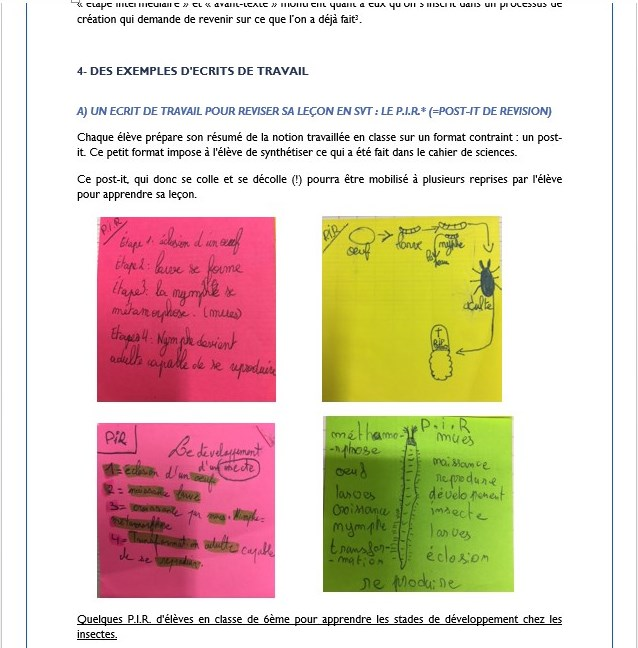 « étape intermédiaire » et « avant-texte » montrent quant à eux qu'on s'inscrit dans un processus de
création qui demande de revenir sur ce que l'on a déjà fait².
4- DES EXEMPLES D'ECRITS DE TRAVAIL
A) UN ECRIT DE TRAVAIL POUR REVISER SA LEÇON EN SVT : LE P.I.R.* (=POST-IT DE REVISION)
Chaque élève prépare son résumé de la notion travaillée en classe sur un format contraint : un post-
it. Ce petit format impose à l'élève de synthétiser ce qui a été fait dans le cahier de sciences.
Ce post-it, qui donc se colle et se décolle (!) pourra être mobilisé à plusieurs reprises par l'élève
pour apprendre sa leçon.
P.I.R
Étape 1: éclosion d'un oeuf
étape 2: larve se forme
étape3: la nymphe se
métamorphose. (mues)
Étape 4: Nymphe devient
adulte capable de se reproduire
PIR
oeuf
larve
nymphe
adulte
PIR
Le développement
d'un insecte
1= éclosion d'un oeuf
2= naissance larve
3= croissance par
métamorphose
4= transformation adulte capable
de se reproduire
P.i.R
méthamo-
-rphose
oeuf
larves
croissance
nymphe
transfor-
-mation
mues
naissance
reproduire
développement
insecte
larves
éclosion
se produire
Quelques P.I.R. d'élèves en classe de 6ème pour apprendre les stades de développement chez les
insectes.